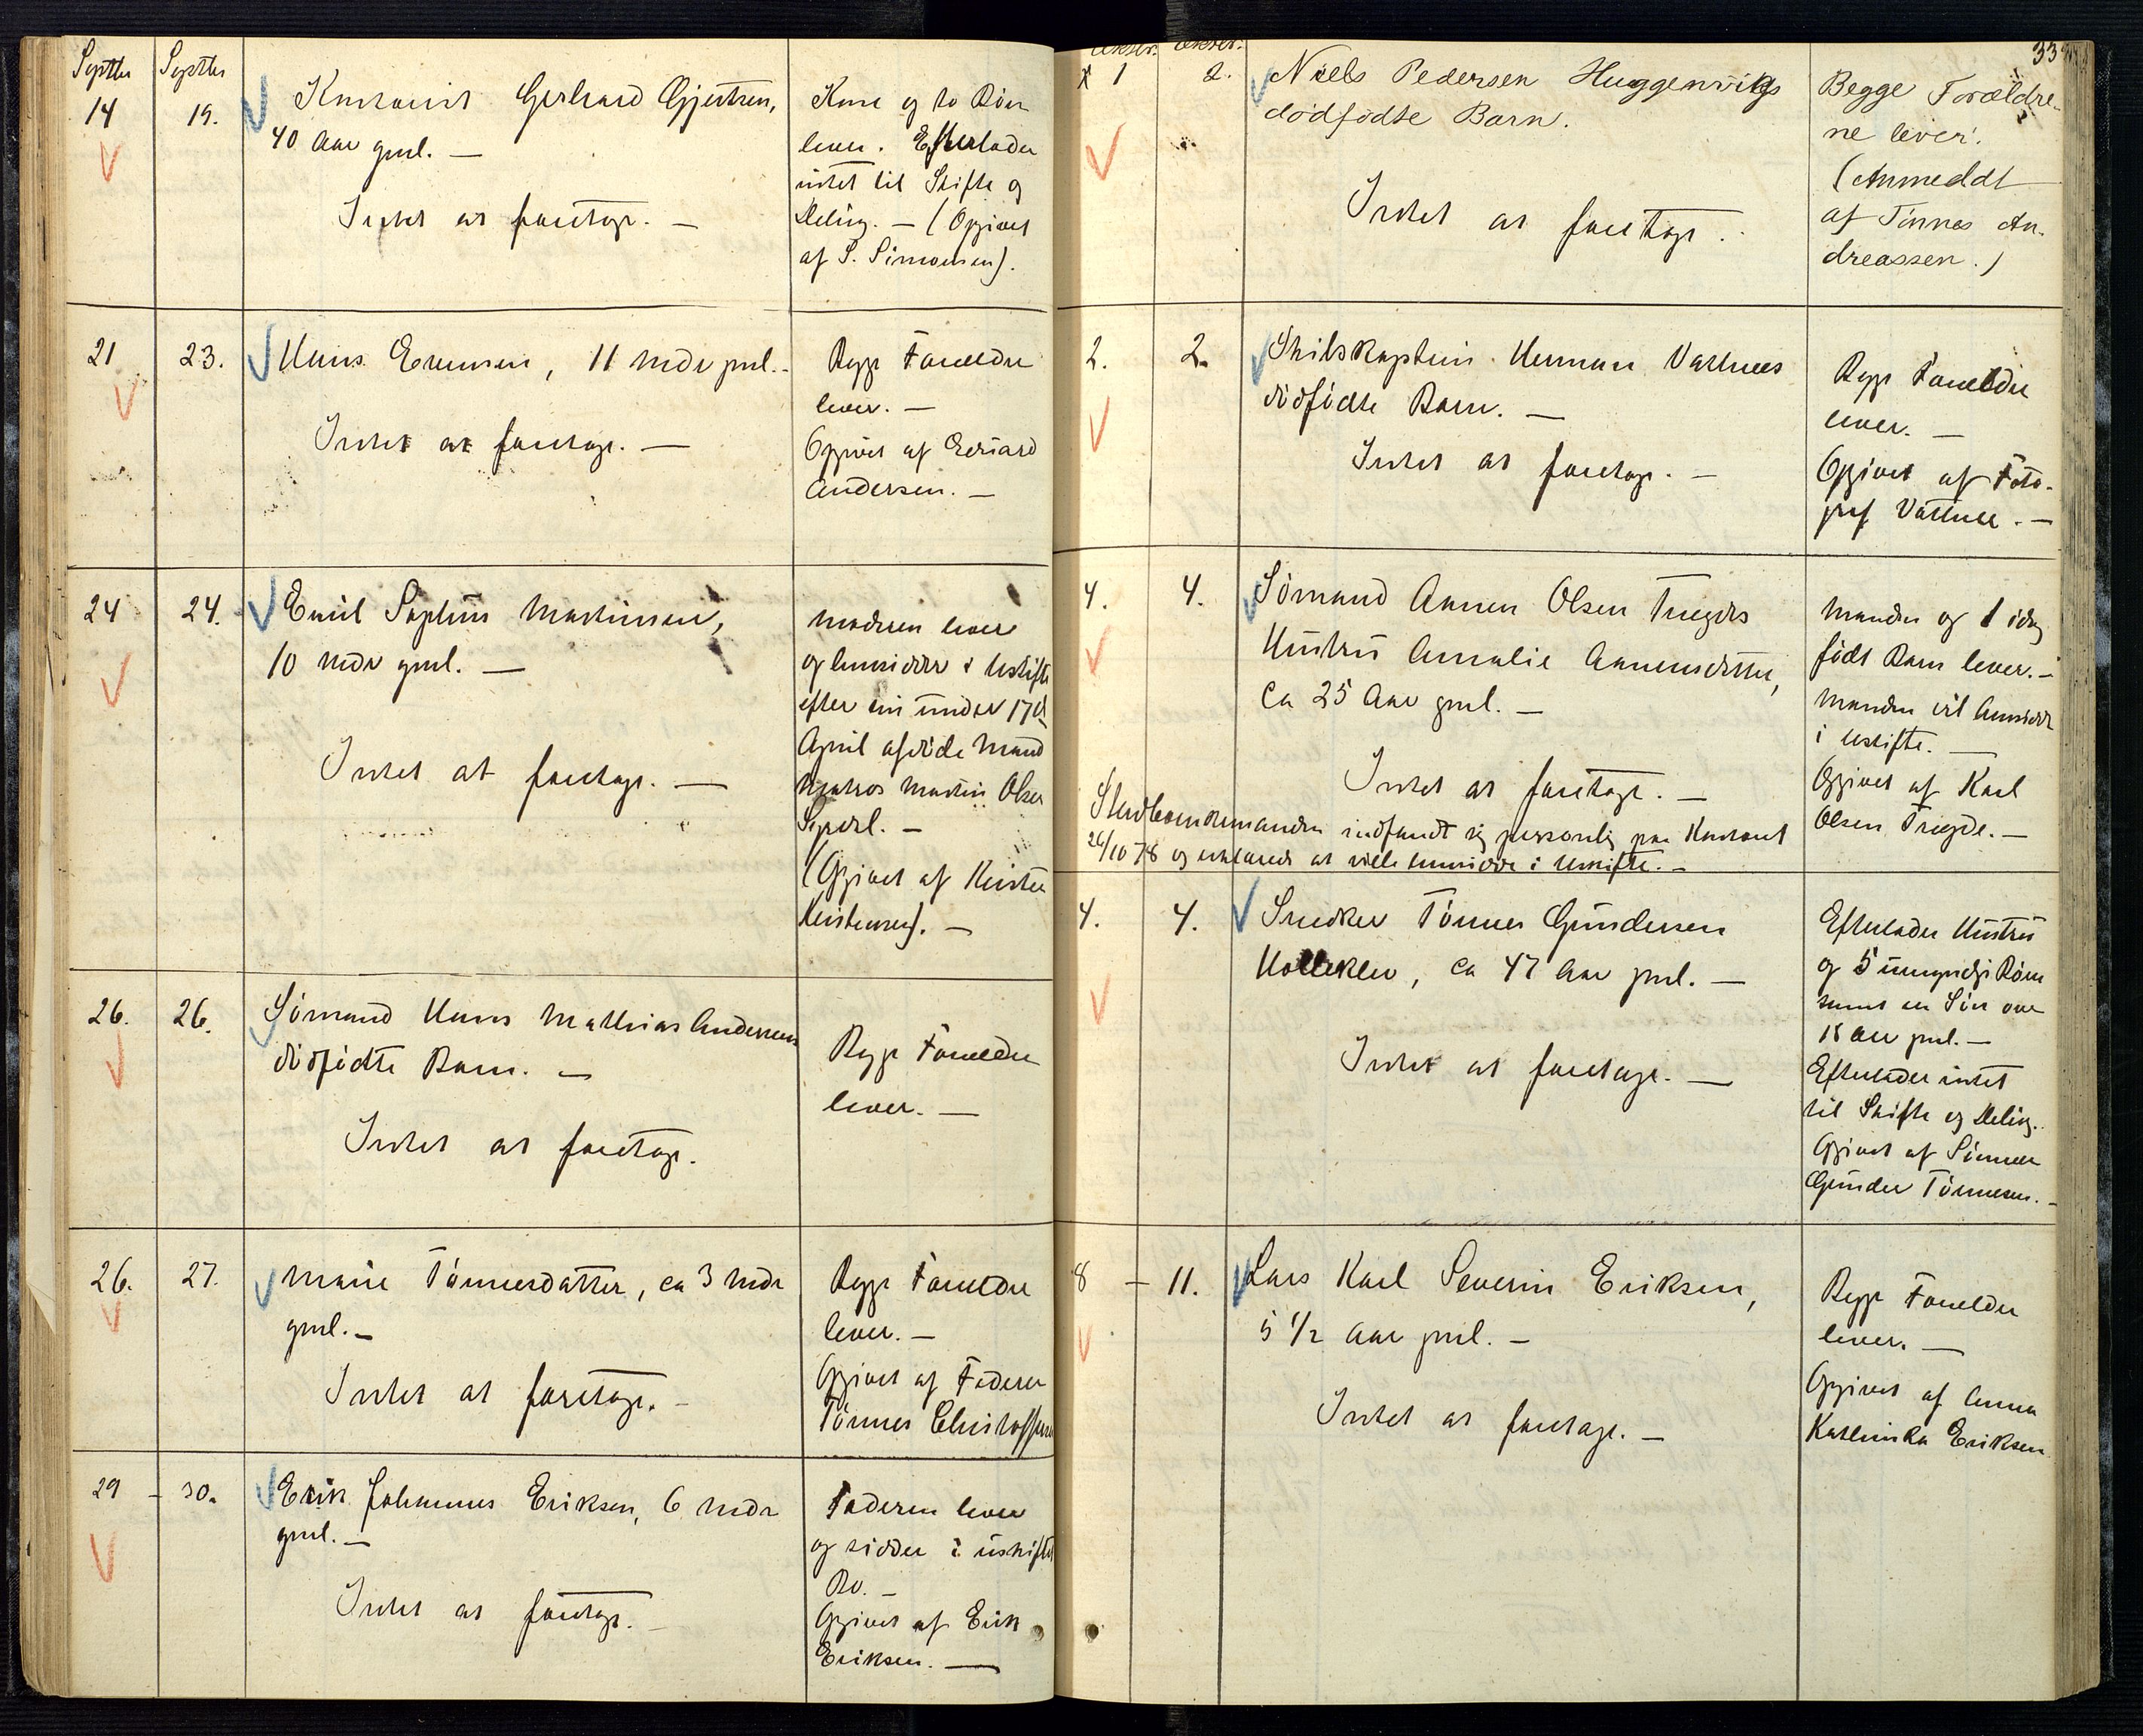 Septbr Septbr
14 19. Gerhard Gjertsen,
40 Aar gml. —
Intet at foretage. —
Kone og to Børn
lever. Efterlader
intet til Skifte og
Deling. — (Opgivet
af S. Simonsen).
21 23. Hans Evensen, 11 Mdr gml. -
Intet at foretage. —
Begge Forældre
lever. —
Opgivet af
Andersen. —
24 24. Emil Sophus Martinsen,
10 Mdr gml. —
Intet at foretage. —
Moderen lever
og hensidder i Uskifte
efter sin under 17de
April afdøde Mand
Matros Martin Olsen
(Opgivet af Kirsten
Kristensen). —
26. 26. Sømand Hans Mathias Andersens
dødfødte Barn. —
Intet at foretage.
Begge Forældre
lever. —
26. 27. Marie Tønnesdatter, ca 3 Mdr
gml. —
Intet at foretage. -
Begge Forældre
lever. —
Opgivet af Faderen
Tønnes Christoffersen
29 - 30. Erik Johannes Eriksen, 6 Mdr
gml. —
Intet at foretage. —
Faderen lever
og sidder i uskiftet
Bo. —
Opgivet af Erik
Eriksen. —
33
Oktbr. Oktbr.
1 2. Niels Pedersen Huggenviks
dødfødte Barn.
Intet at foretage.
Begge Forældre-
ne lever.
(Anmeldt
af Tønnes An-
dreassen.)
2. 2. Skibskaptein Herman Vatnees
dødfødte Barn. —
Intet at foretage. —
Begge Forældre
lever. —
Opgivet af Foto-
graf Vatnee. —
4. 4. Sømand Aanen Olsen Trygdes
Hustru Amalie Aanensdatter,
ca 25 Aar gml. —
Intet at foretage. —
Manden og 1 idag
født Barn lever. —
Manden vil hensidde
i Uskifte. —
Opgivet af Karl
Olsen Trygde. —
indfandt sig personlig paa Kontoret
26/10 78 og erklæred at ville hensidde i Uskifte. —
4. 4. Snedker Tønnes Gundersen
Holleklev, ca 47 Aar gml. —
Intet at foretage. —
Efterlader Hustru
og 5 umyndige Børn
samt en Søn over
18 Aar gml. —
Efterlader intet
til Skifte og Deling.
Opgivet af Sønnen
Gunder Tønnesen. —
8 — 11. Lars Karl Severin Eriksen,
5 1/2 Aar gml. —
Intet at foretage. —
Begge Forældre
lever. —
Opgivet af Anna
Kathinka Eriksen